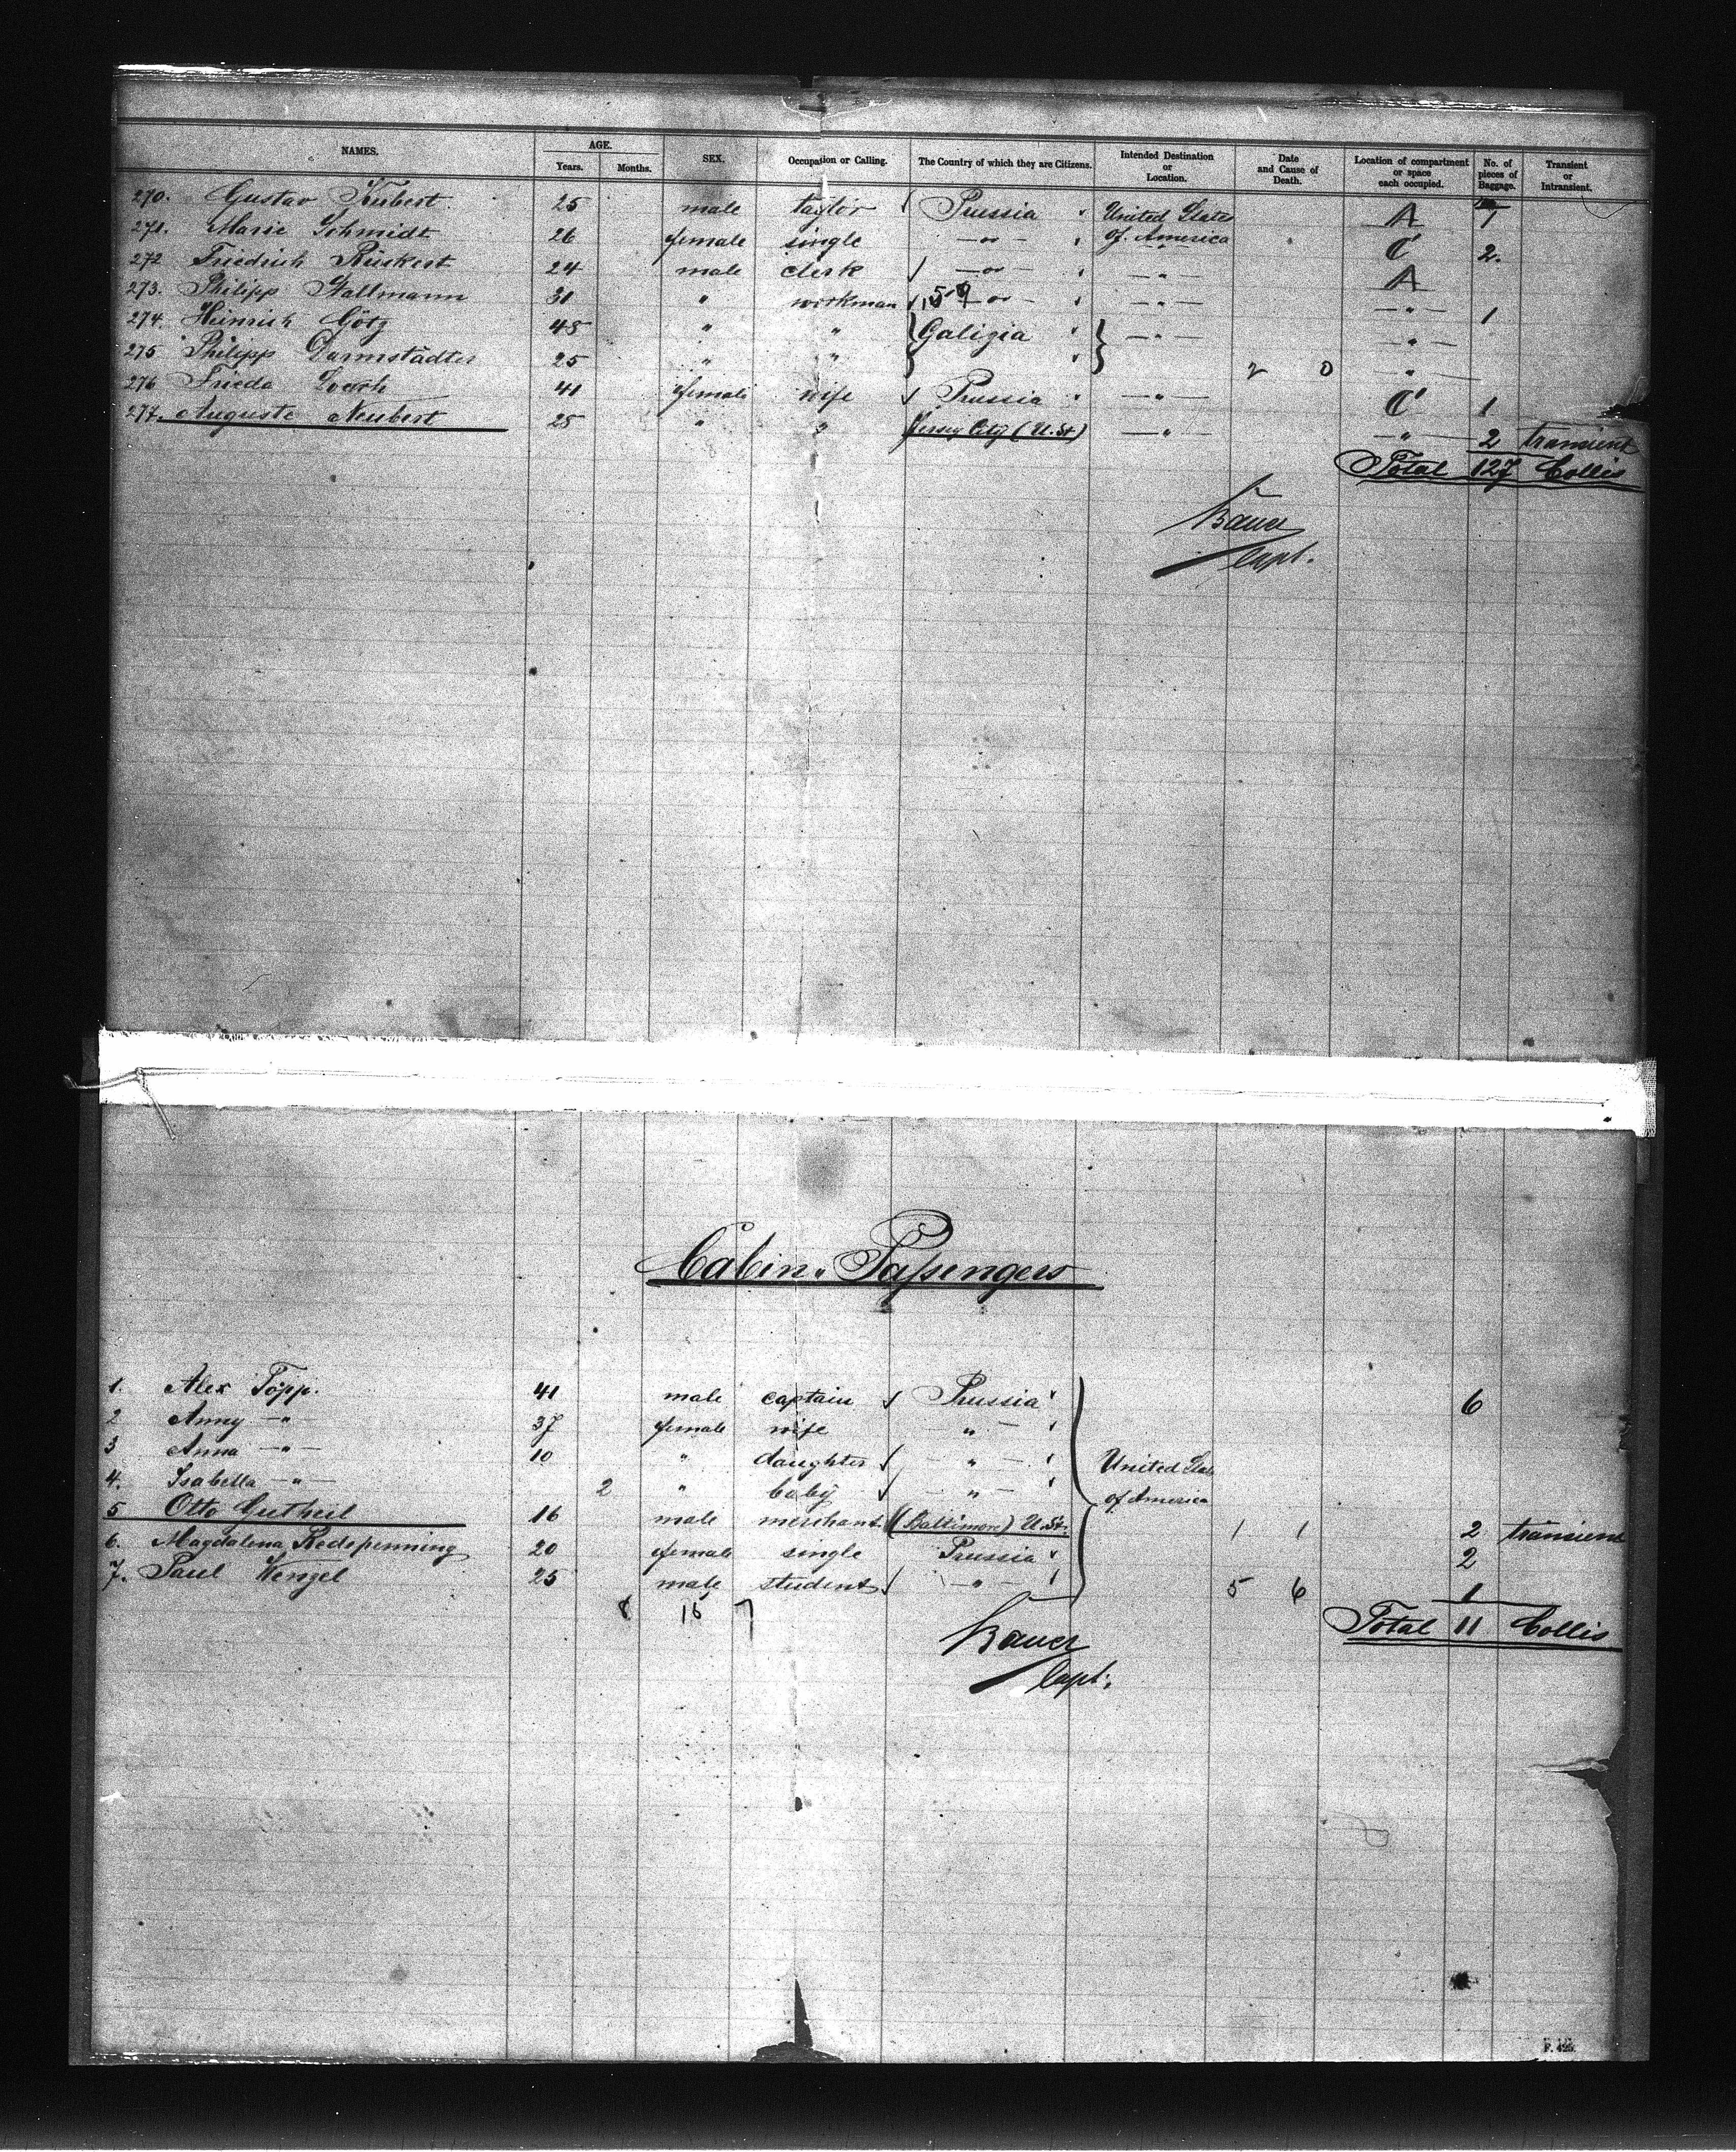 NAMES. AGE. Years. Months. SEX. Occupation or Calling. The Country of which they are Citizens. Intended Destination or Location. Date and Cause of Death. Location of compartment or space each occupied. No. of pieces of Baggage. Transient or Intransient.
270. Gustav 25 male taylor Prussia United States A 1
271. Marie Schmidt 26 female single — " — of America C 2.
272 Friedrich Rückert 24 male clerk — " — — " — A
273. Philipp Stallmann 31 " workman 159 — " — — " — — " — 1
274. Heinrich Götz 48 " " Galizia — " — — " —
275 Philipp Darmstädter 25 " " 2 0 "
276 Frieda 41 female wife Prussia — " — C 1
277. Auguste Neubert 25 " " Jersey City (U. St) — " — — " — 2 transient
Total 127 Collis
Bauer
Capt.
Cabin-Passengers
1. Alex Töpp. 41 male captain Prussia 6
2 Anny — " — 37 female wife "
3 Anna — " — 10 " daughter — " —
4. Isabella — " — 2 " baby — " —
United States
of America
5 Otto Gutheil 16 male merchant (Baltimore) U. St. 1 1 2 transient
6. Magdalena Redepenning 20 female single Prussia 2
7. Paul Wenzel 25 male student — " — 5 6 1
8 15 7
Total 11 Collis
Bauer
Capt.